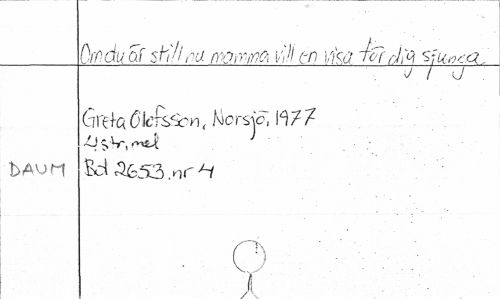 Om du är still nu mamma vill en visa för dig sjunga
Greta Olofsson, Norsjö, 1977
4 str, mel
DAUM Bd 2653 nr 4